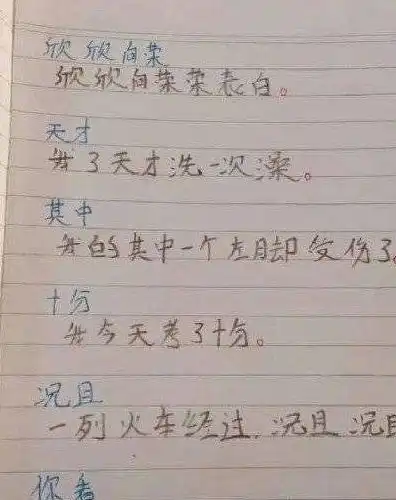 欣欣向荣
欣欣向荣荣表白。
天才
我3天才洗一次澡。
其中
我的其中一个左脚却受伤了
十分
我今天考了十分。
况且
一列火车经过,况且 况且
你看